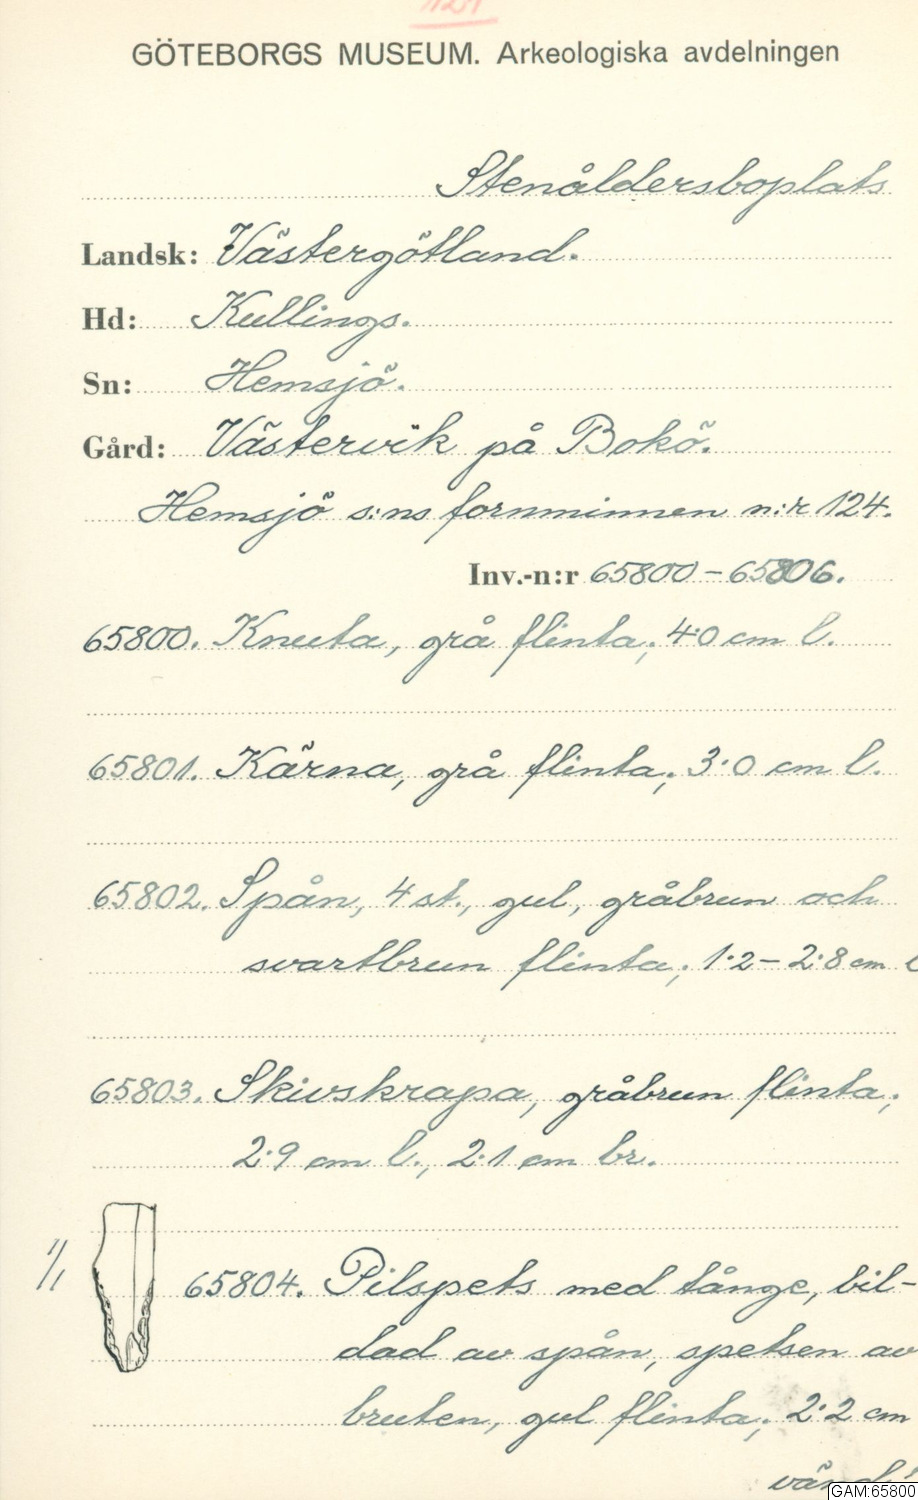 121
GÖTEBORGS MUSEUM. Arkeologiska avdelningen
Stenåldersboplats
Landsk: Västergötland.
Hd: Kullings.
Sn: Hemsjö.
Gård: Västervik på Bokö.
Hemsjö s:ns fornminnen n:r 124.
Inv.-n:r 65800-65806.
65800. Knuta, grå flinta; 4·0 cm l.
65801. Kärna, grå flinta; 3·0 cm l.
65802. Spån, 4 st., gul, gråbrun och
svartbrun flinta; 1·2-2·8 cm l
65803. Skivskrapa, gråbrun flinta;
2·9 cm l., 2·1 cm br.
1/1
65804. Pilspets med tånge, bil-
dad av spån, spetsen av
bruten, gul flinta; 2·2 cm
vänd!
GAM:65800